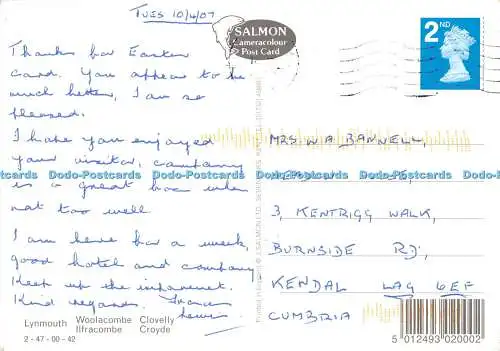 TUES 10/4/07
SALMON
Cameracolour
Post Card
2ND
Thanks for Easter
card. You appear to be
much better, I am so
pleased.
I hope you enjoyed
your visitor, company
is a great boon when
not too well
I am here for a week,
good hotel and company
Keep up the improvement.
Kind regards. Frances
Lewis
MRS W A BANNELL,
3, KENTRIGG WALK,
BURNSIDE RD,
KENDAL LA9 6EF
CUMBRIA
Dodo-Postcards Dodo-Postcards Dodo-Postcards Dodo-Postcards
Lynmouth Woolacombe Clovelly
Ilfracombe Croyde
2 - 47 - 00 - 42
5 012493 020002